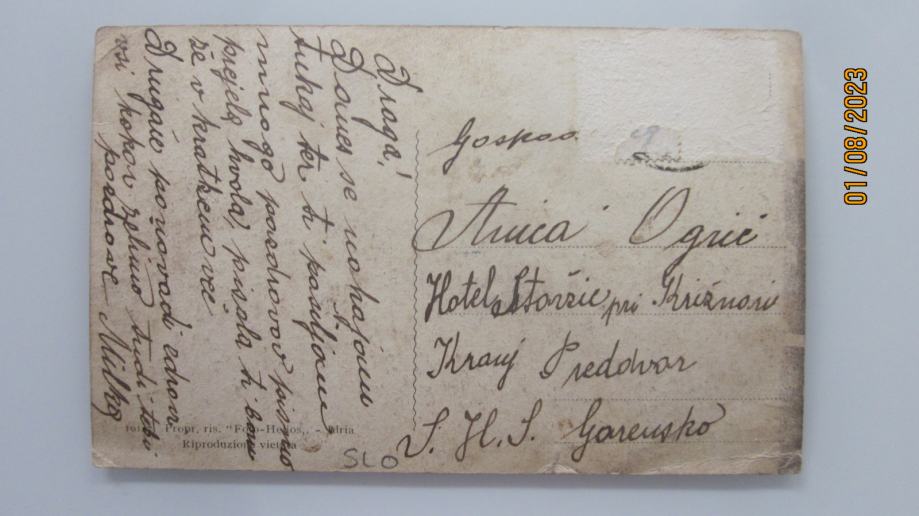 Draga!
Danes se nahajam
tukaj ter ti pošiljam
mnogo pozdravov pismo
prejela, hvala, pisala ti bom
že v kratkem več
Drugače ponovadi zdravi
vsi kakor želimo tudi tebi
pozdrave Milka
Gospod.
Anica Ogric
Hotel Storžic pri Križnarju
Kranj Predvor
S. H. S. Gorensko
Propr. ris. "Foto-Helios„ - Idria
Riproduzione vietata
SLO
01/08/2023